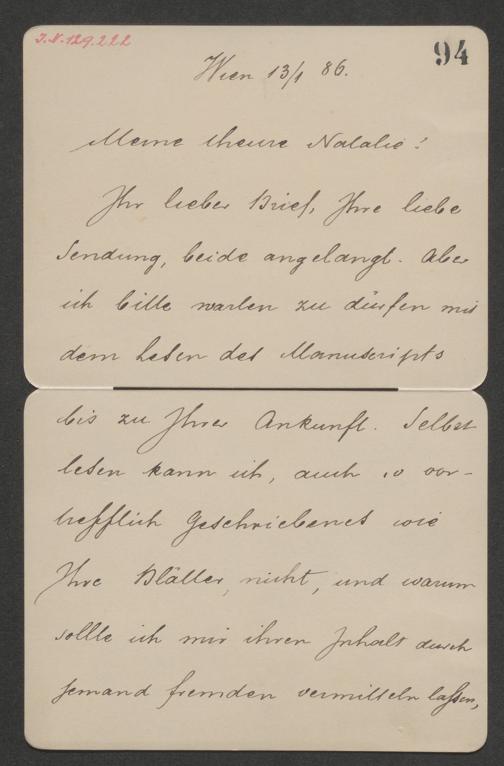 J.N. 129.222
94
Wien 13/1 86.
Meine theure Natalie!
Ihr lieber Brief, Ihre liebe
Sendung, beide angelangt. Aber
ich bitte warten zu dürfen mit
dem Lesen des Manuscripts
bis zu Ihrer Ankunft. Selbst
lesen kann ich, auch so vor-
trefflich Geschriebenes wie
Ihre Blätter, nicht, und warum
sollte ich mir ihren Inhalt durch
Jemand fremden vermitteln laßen,